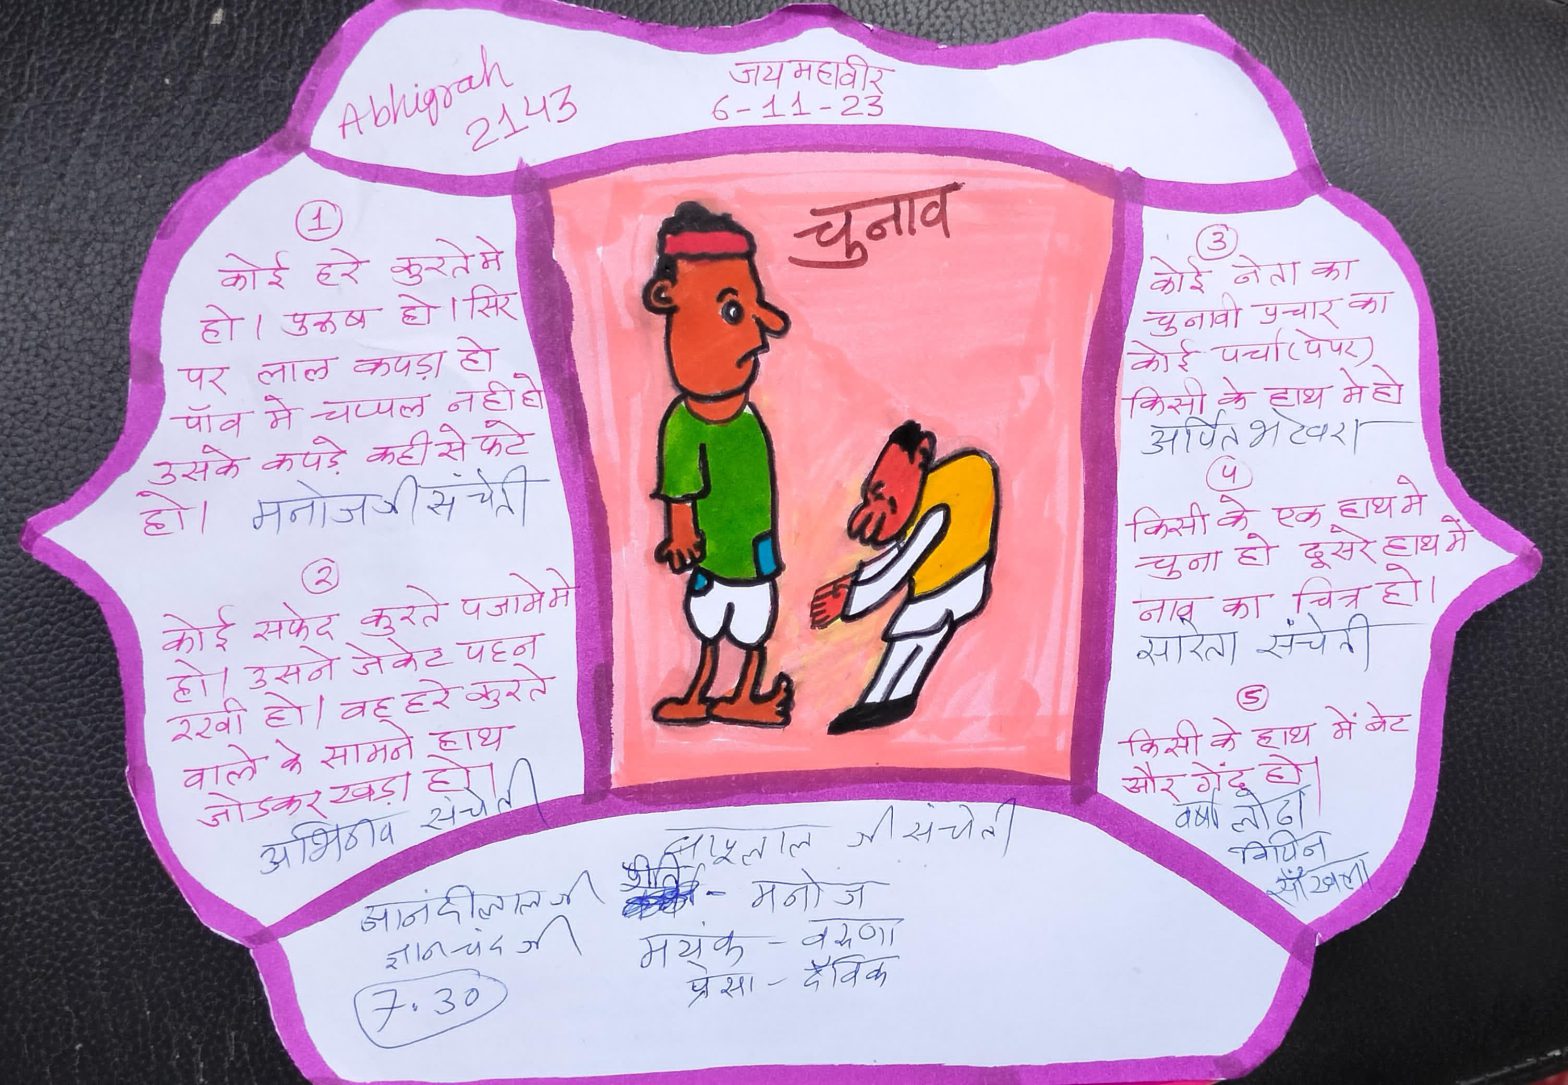 Abhigrah
2143
जय महावीर
6-11-23
चुनाव
①
कोई हरे कुरते मे
हो। पुरूष हो। सिर
पर लाल कपड़ा हो
पॉव मे चप्पल नही हो
उसके कपड़े कही से फटे
हो। मनोजजी संचेती
②
कोई सफेद कुरते पजामे मे
हो। उसने जेकेट पहन
रखी हो। वह हरे कुरते
वाले के सामने हाथ
जोडकर खड़ा हो।
अभिनव संचेती
③
कोई नेता का
चुनावी प्रचार का
कोई पर्चा (पेपर)
किसी के हाथ मे हो
अर्पित भटेवरा
④
किसी के एक हाथ मे
चुना हो दूसरे हाथ मे
नाव का चित्र हो।
सरिता संचेती
⑤
किसी के हाथ में बेट
और गेंद हो।
वर्षा लोढा
विपिन
साँखला
लाल जी संचेती
आनंदीलालजी
- मनोज
ज्ञानचंदजी
मयंक - वरूणा
प्रेक्षा - दैविक
7.30